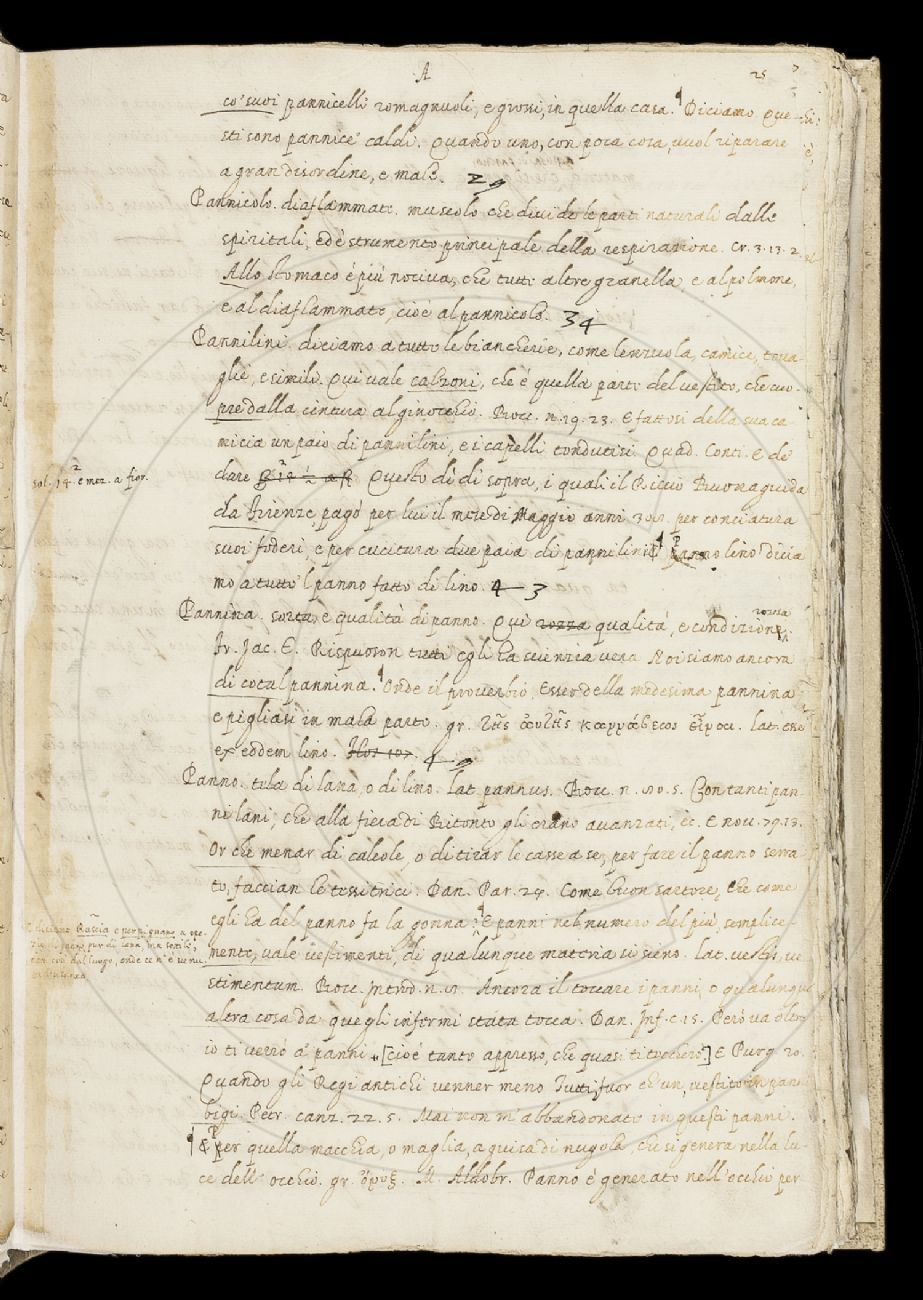 A
25
co' suoi pannicelli romagnuoli, e grossi, in quella casa. Diciamo Que-
sti sono pannice' caldi. Quando uno, con poca cosa, vuol riparare
a gran disordine, e male.
Pannicolo. diaflammate. muscolo che divide le parti naturali dalle
spiritali, ed è strumento principale della respirazione. Cr. 3. 13. 2.
Allo stomaco è più nociva, che tutti altre granella e al polmone,
e al diaflammate, cioè al pannicolo. 34
Pannilini. diciamo a tutte le biancherie, come lenzuola, camice, tova-
glie, e simili. Qui vale calzoni, che è quella parte del vestito, che cuo-
pre dalla cintura al ginocchio. Bocc. n. 19. 23. E fattosi della sua ca
micia un paio di pannilini, e i capelli tondutisi Quad. Conti. E de
dare Questo dì di sopra, i quali il Riccio Buonaguida
sol. 14 e mez. a fior.
da Firenze, pagò per lui il mese di Maggio anni per conciatura
suoi foderi, e per cucitura due paia di pannilini panno lino dicia
mo a tutto 'l panno fatto di lino. 4 3
Pannina. sorta, e qualità di panno. Qui rozza qualità, e condizione
rozza
Fr. Jac. T. Risposon tutti egli ha scienzia vera Noi siamo ancora
di cotal pannina. Onde il proverbio, Esser della medesima pannina
e pigliasi in mala parte. gr. τῆς αὐτῆς lat.
ex eodem lino.
Panno. tela di lana, o di lino. lat. pannus. Bocc. n. 5. Con tanti pan-
ni lani, che alla fiera di Bitonto gli erano avanzati, ec. E nov. 79. 13.
Or che menar di calcole, o di tirar le casse a se, per fare il panno serra
to, faccian le tessitrici. Dan. Par. Come buon sartore, Che come
egli ha del panno fa la gonna. E panni nel numero del più, semplice-
mente, vale vestimenti, di qualunque materia si sieno. lat. vestis, ve
stimentum. Bocc. Introd. n. Ancora il toccare i panni, o qualunque
altra cosa da quegli infermi stata tocca. Dan. Inf. c. 15. Però va oltre
io ti verrò a' panni [cioè tanto appresso, che quasi ti toccherò.] E Purg. 20.
Quando gli Regi antichi venner meno Tutti, fuor ch'un, vestito in pan
bigi. Petr. canz. 22. 5. Mai non m'abbandonate in questi panni.
E per quella macchia, o maglia, a guisa di nugola, che si genera nella lu-
ce dell' occhio. gr. M. Aldobr. Panno è generato nell'occhio per